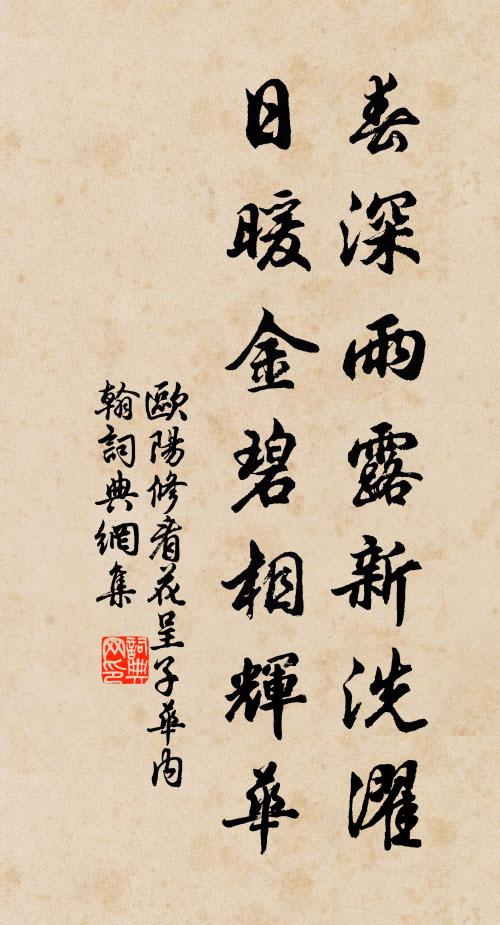 春深雨露新洗濯
日暖金碧相輝華
歐陽修看花呈子華內
翰詞典網集
詞典
网印